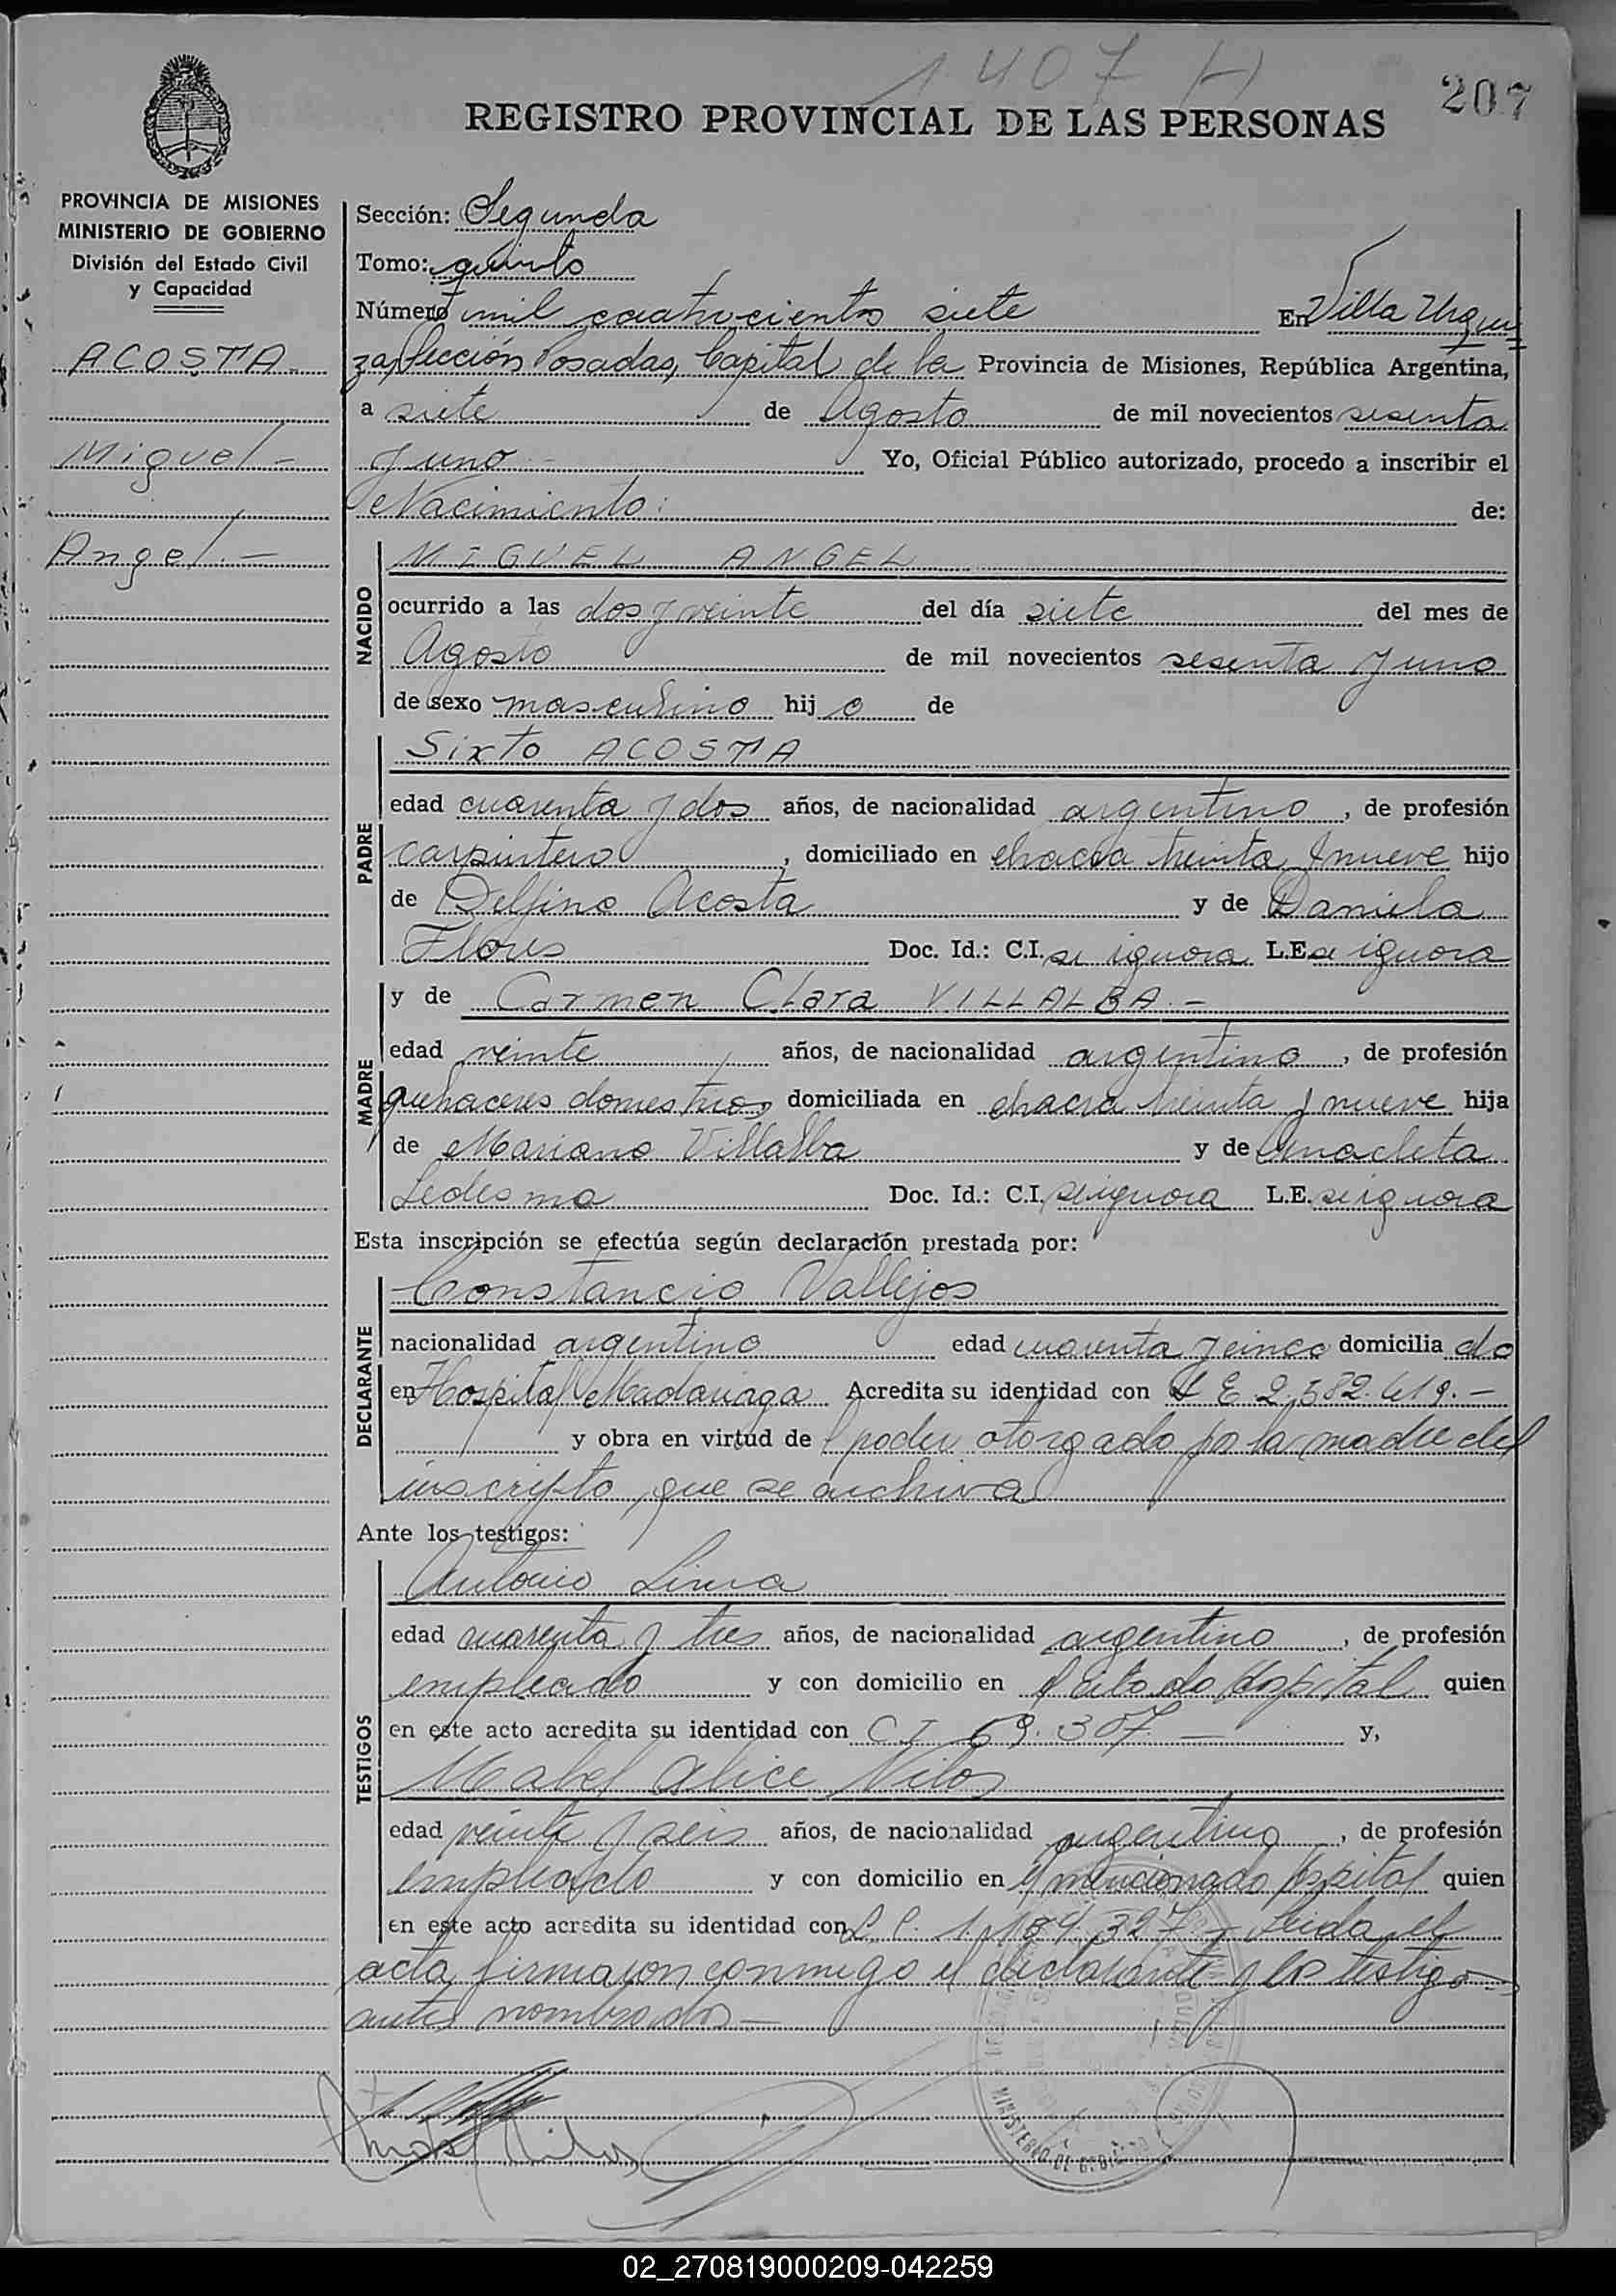 1407 H
207
REGISTRO PROVINCIAL DE LAS PERSONAS
PROVINCIA DE MISIONES
MINISTERIO DE GOBIERNO
División del Estado Civil
y Capacidad
ACOSTA
Miguel -
Angel. -
Sección: Segunda
Tomo: quinto
Número mil cuatrocientos siete En Villa Urqui
za, Sección Posadas, Capital de la Provincia de Misiones, República Argentina,
a siete de Agosto de mil novecientos sesenta
y uno - Yo, Oficial Público autorizado, procedo a inscribir el
Nacimiento: de:
NACIDO
MIGUEL ANGEL
ocurrido a las dos y veinte del día siete del mes de
Agosto de mil novecientos sesenta y uno
de sexo masculino hij o de
PADRE
Sixto ACOSTA
edad cuarenta y dos años, de nacionalidad argentino, de profesión
carpintero, domiciliado en chacra treinta y nueve hijo
de Delfino Acosta y de Daniela
Flores Doc. Id.: C.I. se ignora L.E. se ignora
MADRE
y de Carmen Clara VILLALBA. -
edad veinte años, de nacionalidad argentina, de profesión
quehaceres domesticos domiciliada en chacra treinta y nueve hija
de Mariano Villalba y de Anacleta
Ledesma Doc. Id.: C.I. se ignora L.E. se ignora
Esta inscripción se efectúa según declaración prestada por:
DECLARANTE
Constancio Vallejos
nacionalidad argentino edad cuarenta y cinco domicilia do
en Hospital Madariaga Acredita su identidad con L E 2.582.419. -
y obra en virtud de poder otorgado por la madre del
inscripto, que se archiva
Ante los testigos:
TESTIGOS
Antonio Lima
edad cuarenta y tres años, de nacionalidad argentino, de profesión
empleado y con domicilio en el citado Hospital quien
en este acto acredita su identidad con C I 69.307 - y,
Mabel Alice Vilos
edad veinte y seis años, de nacionalidad argentina, de profesión
empleada y con domicilio en el mencionado Hospital quien
en este acto acredita su identidad con L. C. 1.184.327 - Leida el
acta, firmaron conmigo el declarante y los testigos
antes nombrados -
MINISTERIO DE GOBIERNO
02_270819000209-042259